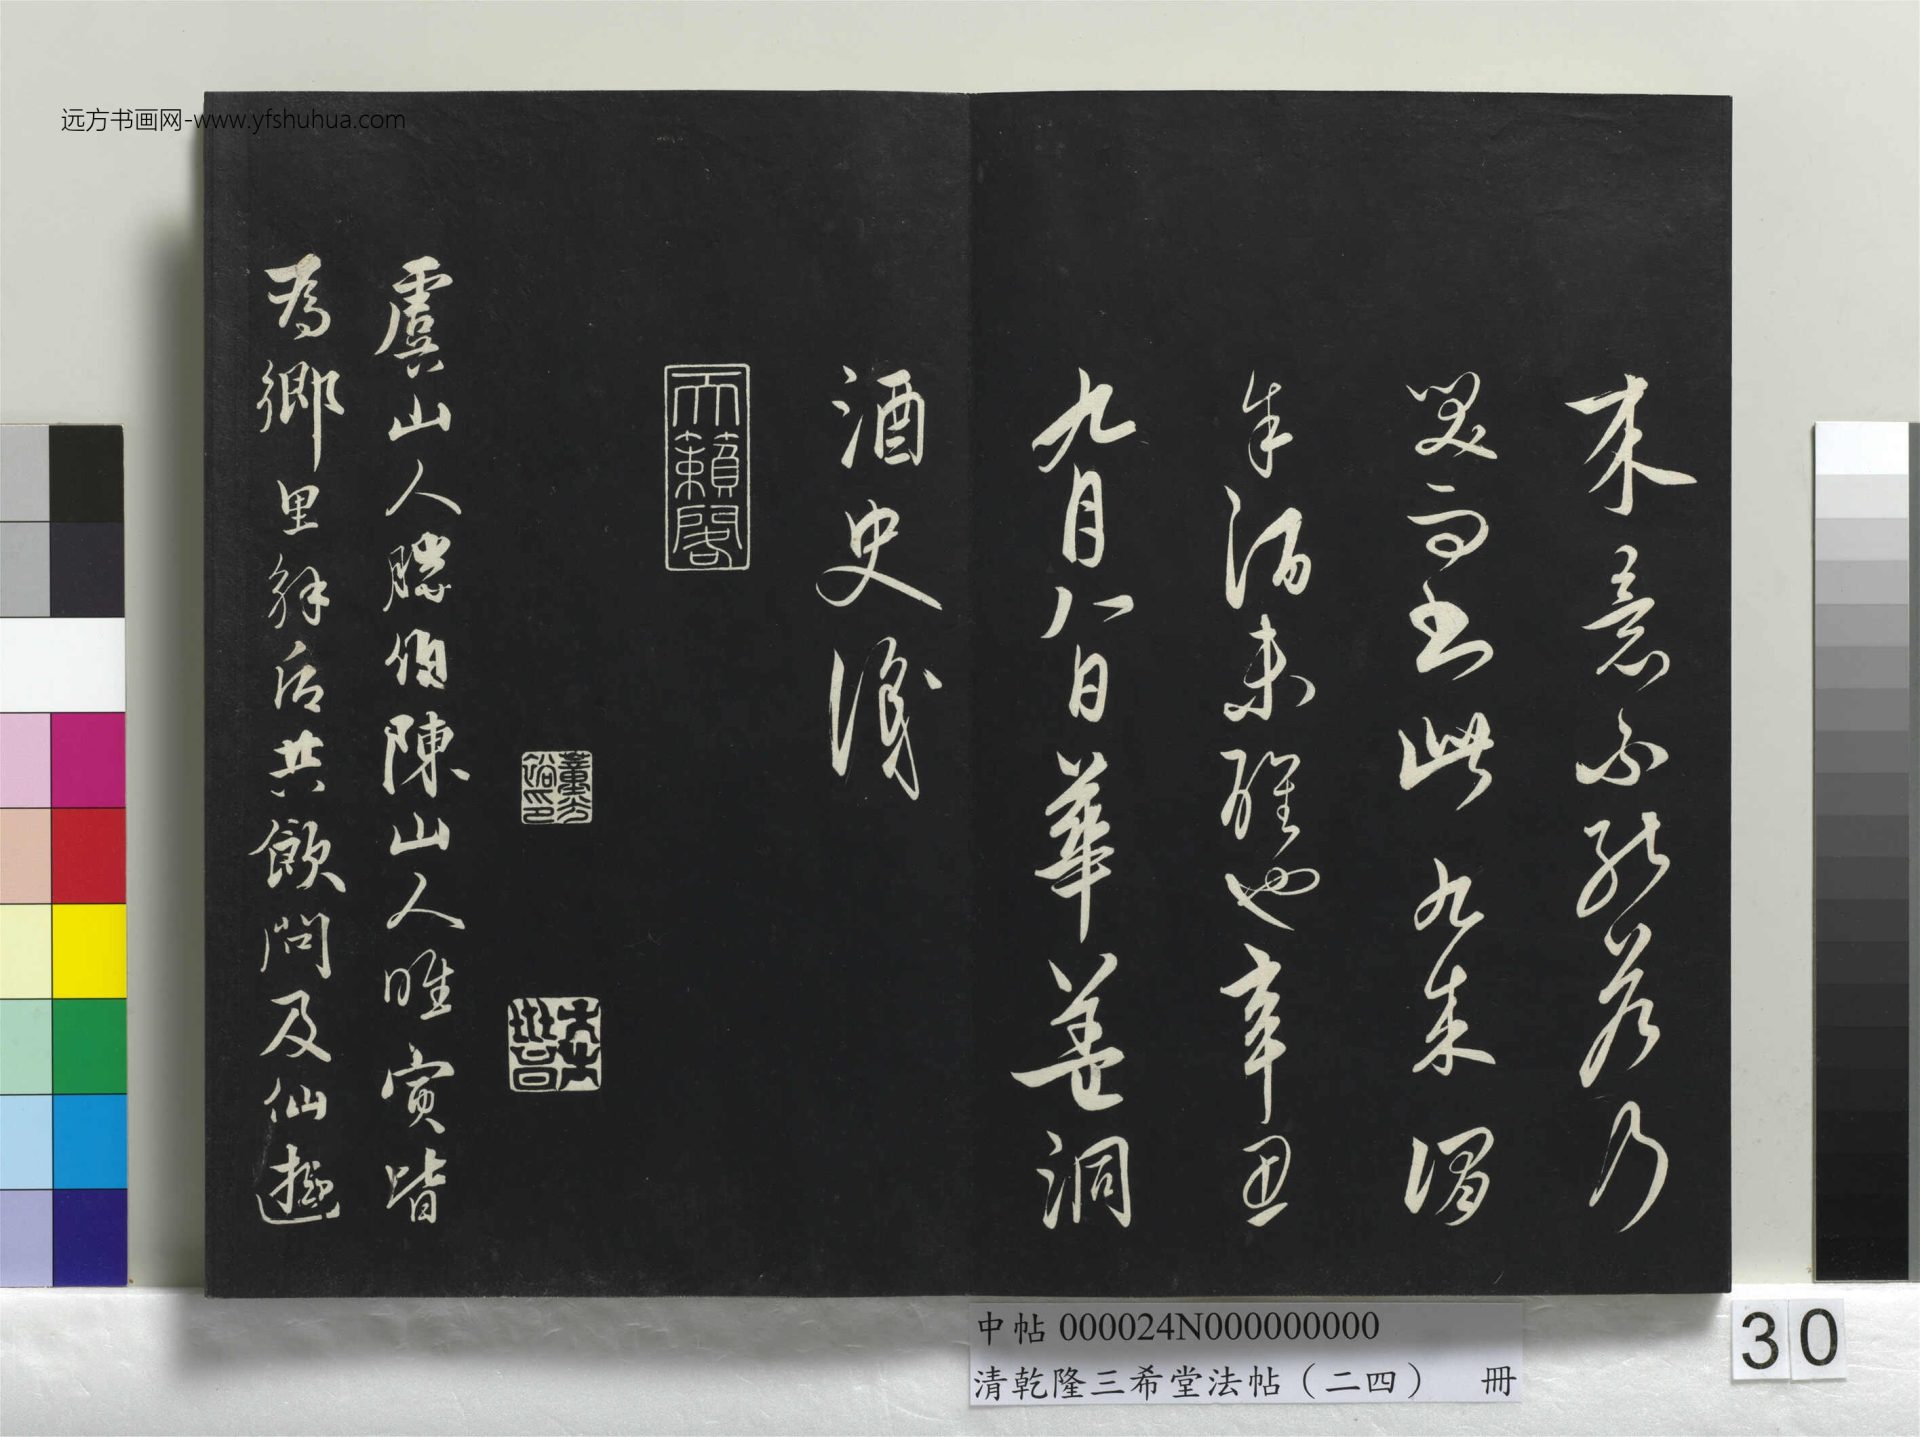 远方书画网-www.yfshuhua.com
來意不能答乃
笑而書此九成謂
余酒未醒也辛丑
九月八日華蓋洞
酒史識
天籟閣
虞山人勝伯陳山人唯寅皆
為鄉里解后共飲問及仙
中帖 000024N000000000
清乾隆三希堂法帖（二四） 冊
30